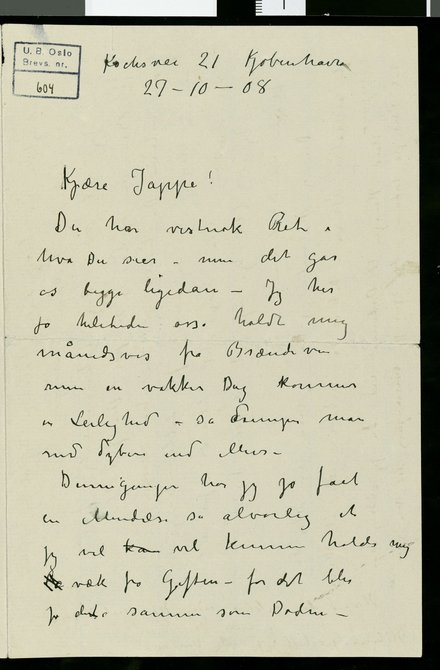 U. B. Oslo
Brevs. nr.
604
Kochsvei 21 Kjøbenhavn
27-10-08
Kjære Jappe!
Du har vistnok Ret i
hva Du sier - men det går
os begge ligedan - Jeg har
jo heletiden også holdt mig
månedsvis fra Brændevin
men en vakker Dag kommer
en Leilighed - så
ned dybere end Mus -
Dennegangen har jeg jo fået
en så alvorlig at
jeg vel vel kunne holde mig
væk fra Giften - for det blir
jo det samme som Døden -